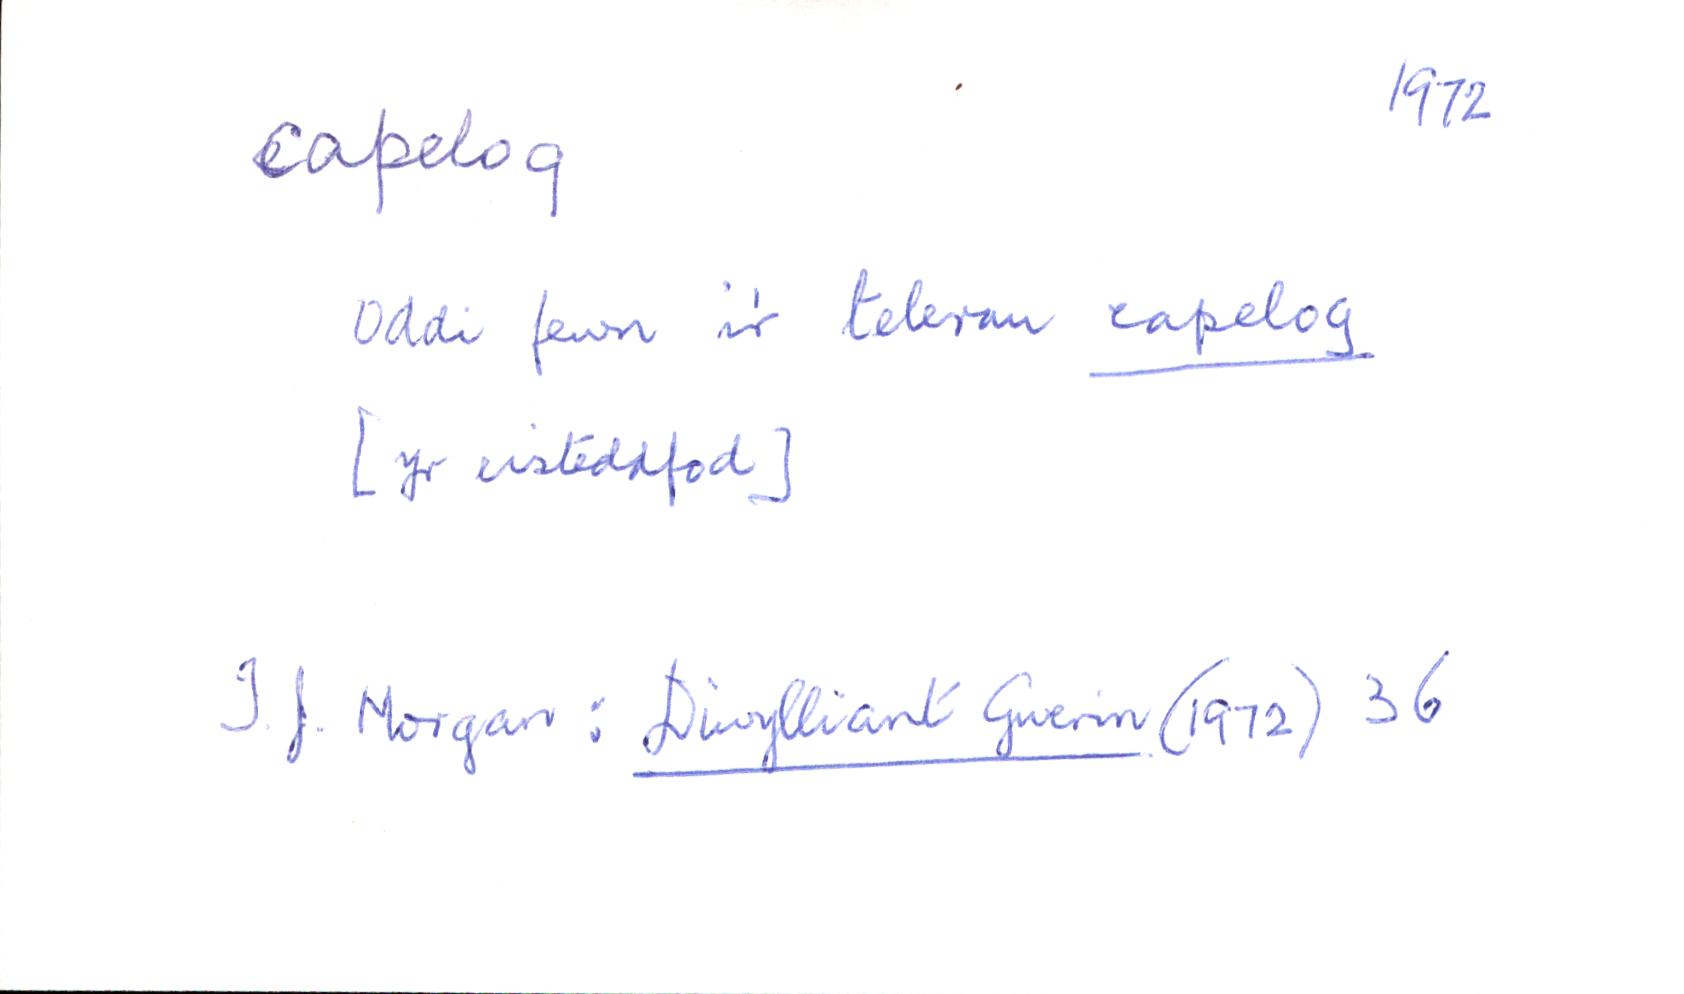 1972
capelog
Oddi fewn i'r telerau capelog
[yr eisteddfod]
T. J. Morgan : Diwylliant Gwerin (1972) 36